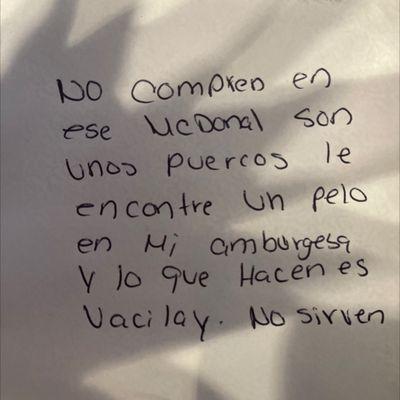 NO compren en
ese McDonal son
unos puercos le
encontre un pelo
en Mi amburgesa
y lo que Hacen es
Vacilay. No sirven